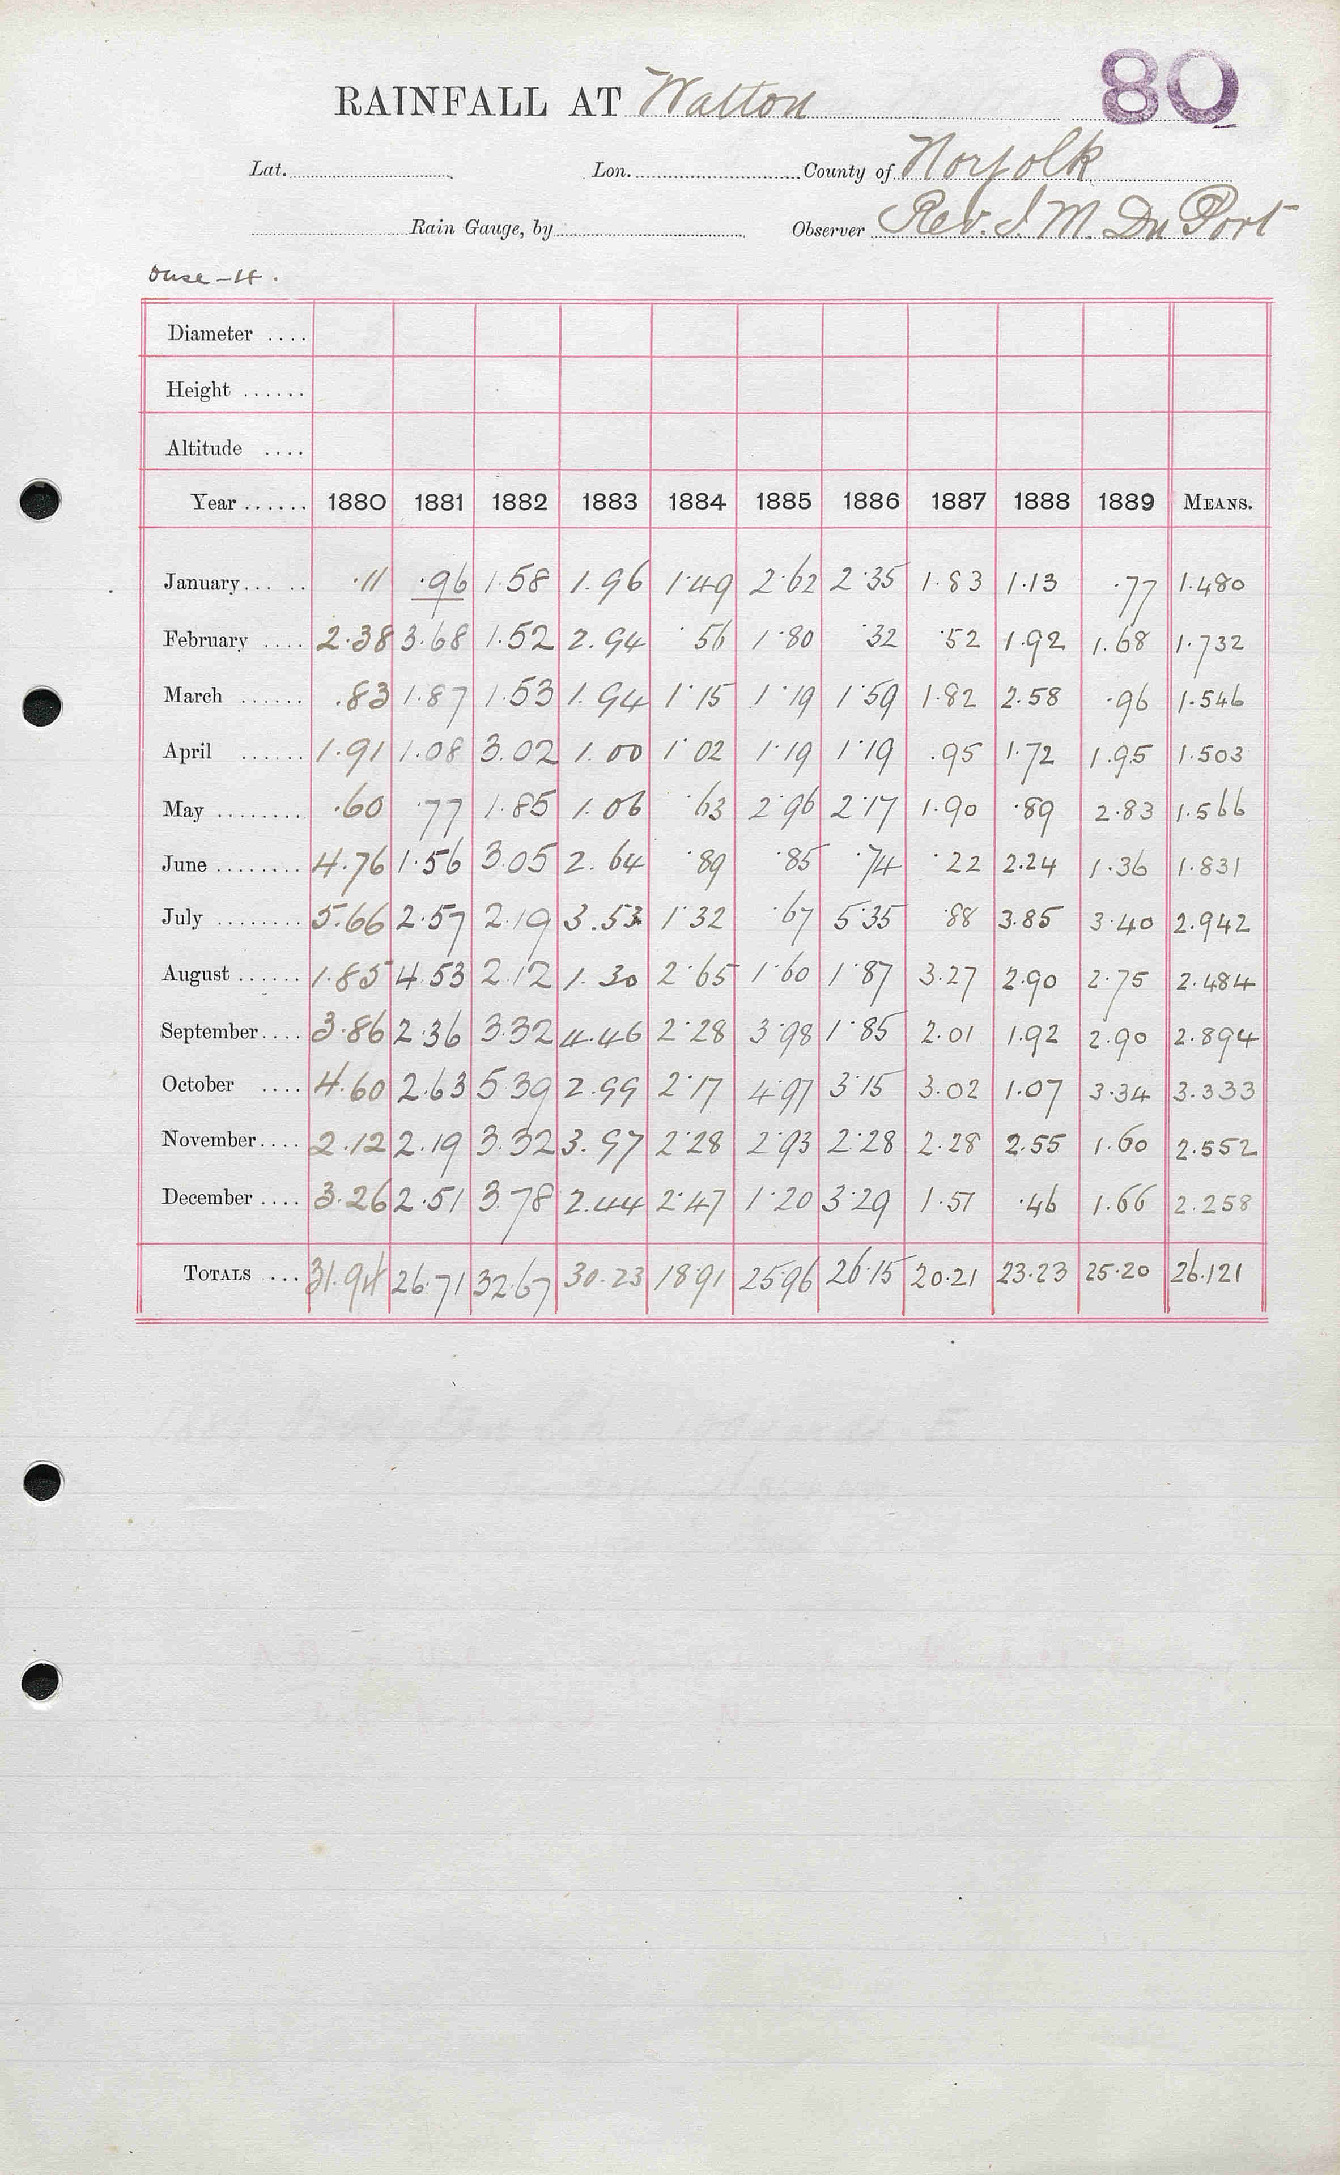 RAINFALL AT Watton 80
Lat. Lon. County of Norfolk
Rain Gauge, by Observer Rev. J. M. Du Port
Ouse - 4.
Diameter ....
Height ......
Altitude ....
Year ...... 1880 1881 1882 1883 1884 1885 1886 1887 1888 1889 MEANS.
January... .. .11 .96 1.58 1.96 1.49 2.62 2.35 1.83 1.13 .77 1.480
February .... 2.38 3.68 1.52 2.94 .56 1.80 .32 .52 1.92 1.68 1.732
March ...... .83 1.87 1.53 1.94 1.15 1.19 1.59 1.82 2.58 .96 1.546
April ...... 1.91 1.08 3.02 1.00 1.02 1.19 1.19 .95 1.72 1.95 1.503
May ........ .60 .77 1.85 1.06 .63 2.96 2.17 1.90 .89 2.83 1.566
June ........ 4.76 1.56 3.05 2.64 .89 .85 .74 .22 2.24 1.36 1.831
July ........ 5.66 2.57 2.19 3.53 1.32 .67 5.35 .88 3.85 3.40 2.942
August ...... 1.85 4.53 2.12 1.30 2.65 1.60 1.87 3.27 2.90 2.75 2.484
September.... 3.86 2.36 3.32 4.46 2.28 3.98 1.85 2.01 1.92 2.90 2.894
October .... 4.60 2.63 5.39 2.99 2.17 4.97 3.15 3.02 1.07 3.34 3.333
November.... 2.12 2.19 3.32 3.97 2.28 2.93 2.28 2.28 2.55 1.60 2.552
December .... 3.26 2.51 3.78 2.44 2.47 1.20 3.29 1.51 .46 1.66 2.258
TOTALS ... 31.94 26.71 32.67 30.23 18.91 25.96 26.15 20.21 23.23 25.20 26.121